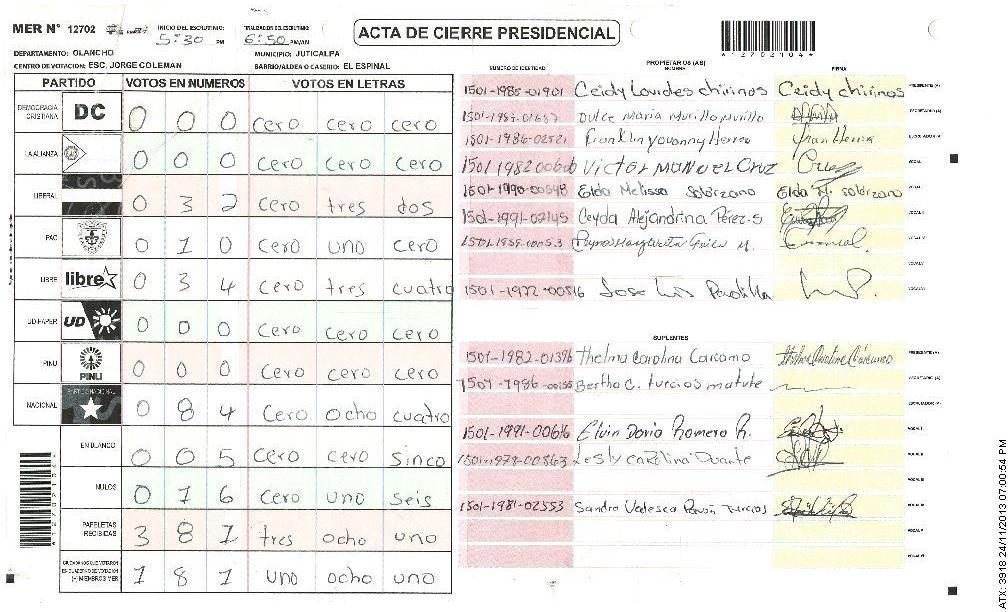 MER N° 12702
INICIO DEL ESCRUTINIO: 5:30 PM
FINALIZACION DEL ESCRUTINIO: 6:50 PM/AM
ACTA DE CIERRE PRESIDENCIAL
*12702104*
DEPARTAMENTO: OLANCHO
MUNICIPIO: JUTICALPA
CENTRO DE VOTACION: ESC. JORGE COLEMAN
BARRIO/ALDEA O CASERIO: EL ESPINAL
PARTIDO VOTOS EN NUMEROS VOTOS EN LETRAS
DEMOCRACIA CRISTIANA DC 0 0 0 cero cero cero
LA ALIANZA 0 0 0 cero cero cero
LIBERAL 0 3 2 cero tres dos
PAC 0 1 0 cero uno cero
LIBRE libre 0 3 4 cero tres cuatro
UD/FAPER UD 0 0 0 cero cero cero
PINU PINU 0 0 0 cero cero cero
NACIONAL PARTIDO NACIONAL 0 8 4 cero ocho cuatro
EN BLANCO 0 0 5 cero cero sinco
NULOS 0 1 6 cero uno seis
PAPELETAS RECIBIDAS 3 8 1 tres ocho uno
CIUDADANOS QUE VOTARON EN CUADERNO DE VOTACION (+) MIEMBROS MER 1 8 1 uno ocho uno
NUMERO DE IDENTIDAD PROPIETARIOS (AS) NOMBRE FIRMA
1501-1985-01901 Ceidy Lourdes chirinos Ceidy chirinos PRESIDENTE (A)
Dulce Maria Murillo Murillo SECRETARIO (A)
1501-1986-02521 Franklin yovanny Herrera Fran Herrera ESCRUTADOR (A)
VICTOR MANUEL CRUZ Cruz VOCAL I
1501-1990-00548 Elda Melissa Solorzano Elda M. solorzano VOCAL II
1501-1991-02145 Ceyda Alejandrina Perez.s VOCAL III
VOCAL IV
VOCAL V
1501-1972-00516 Jose Luis Padilla VOCAL VI
SUPLENTES
1501-1982-01376 Thelma Carolina Carcamo Thelma Carolina Cárcamo PRESIDENTE (A)
Bertha C. turcios matute SECRETARIO (A)
ESCRUTADOR (A)
1501-1991-00616 Elvin Dario Romero R. VOCAL I
1501-1979-00563 Lesly carolina Duarte VOCAL II
VOCAL III
1501-1981-02553 Sandra Valesca Pavon Turcios VOCAL IV
VOCAL V
VOCAL VI
*12702104*
PRESIDENCIAL
ATX: 3918 24/11/2013 07:00:54 PM